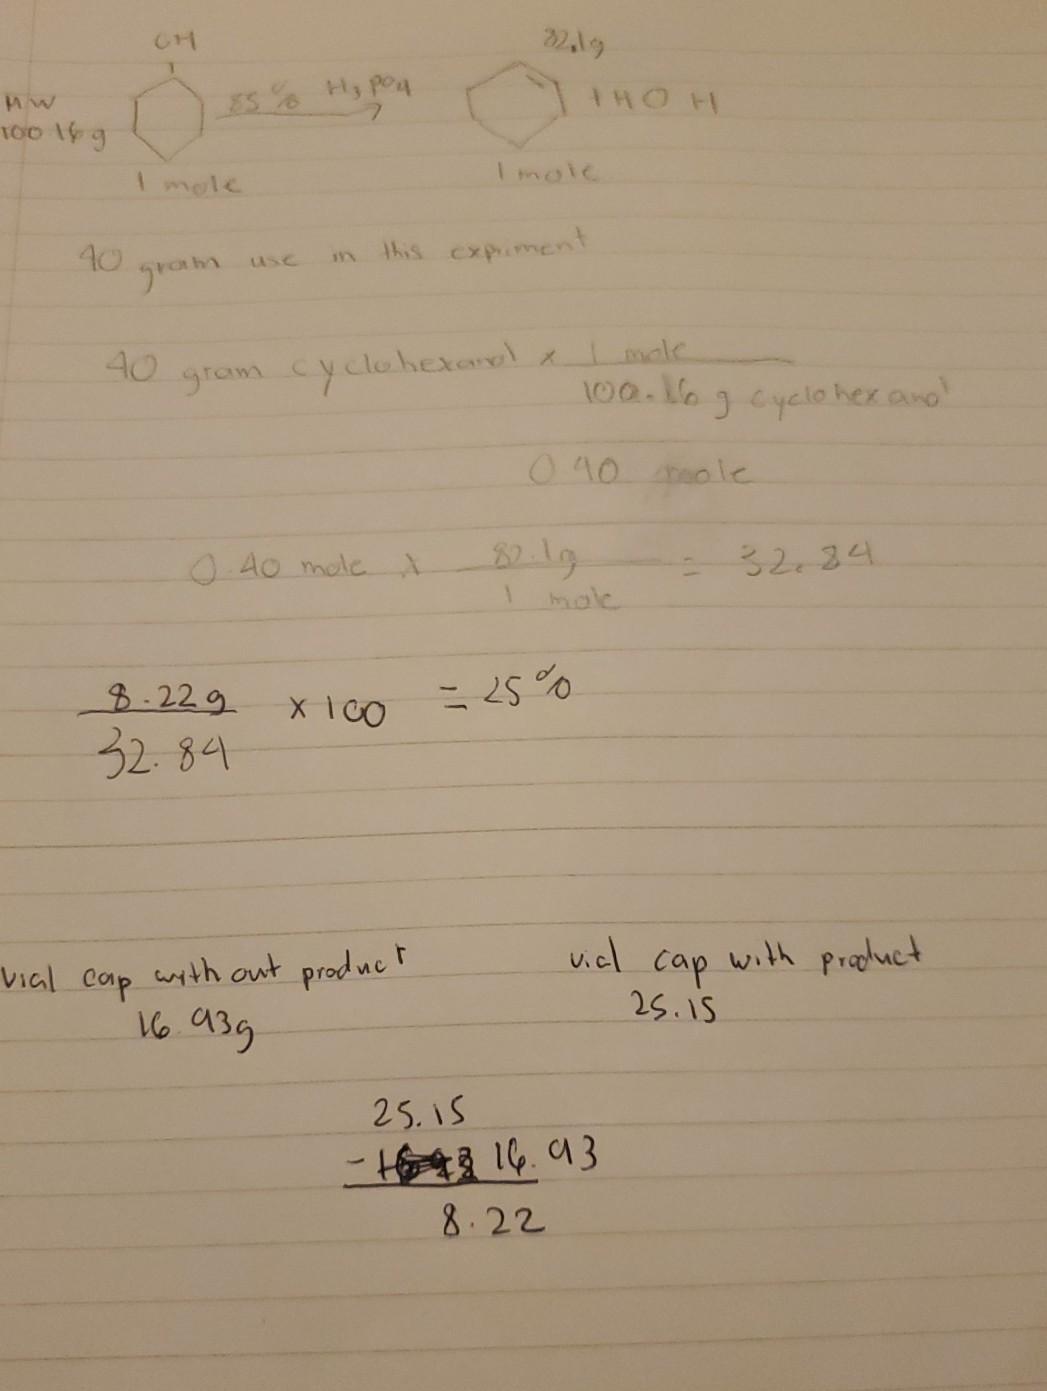 OH
82.1g
MW
100.16g
85% H3PO4
+ HOH
1 mole
1 mole
40 gram use in this expriment
40 gram cyclohexanol x 1 mole
100.16 g cyclohexanol
0.40 mole
0.40 mole x 82.1g = 32.84
1 mole
8.22g x 100 = 25%
32.84
vial cap without product
16.93g
vial cap with product
25.15
25.15
- 16.93
8.22